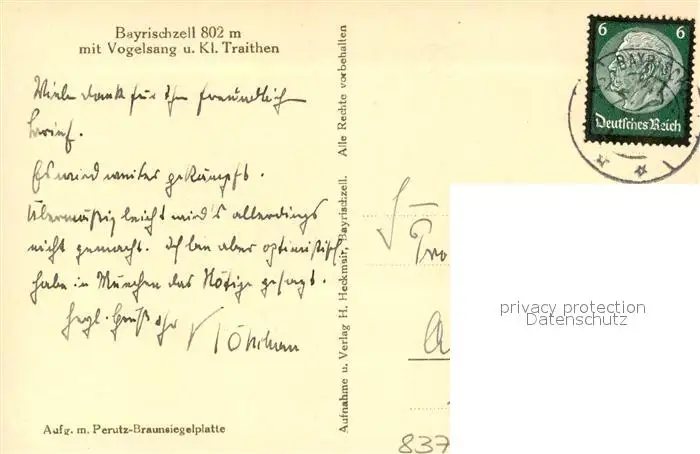 Bayrischzell 802 m
mit Vogelsang u. Kl. Traithen
Viele dank für Ihr freundlich
brief.
Es wird weiter gekämpft.
Übermäßig leicht wird's allerdings
nicht gemacht. Ich bin aber optimistisch
habe in München das Nötige gesagt.
herzl. Gruß Ihr
Aufg. m. Perutz-Braunsiegelplatte
Aufnahme u. Verlag H. Heckmair, Bayrischzell. Alle Rechte vorbehalten
6 6
BAYRISCH
Deutsches Reich
privacy protection
Datenschutz
837